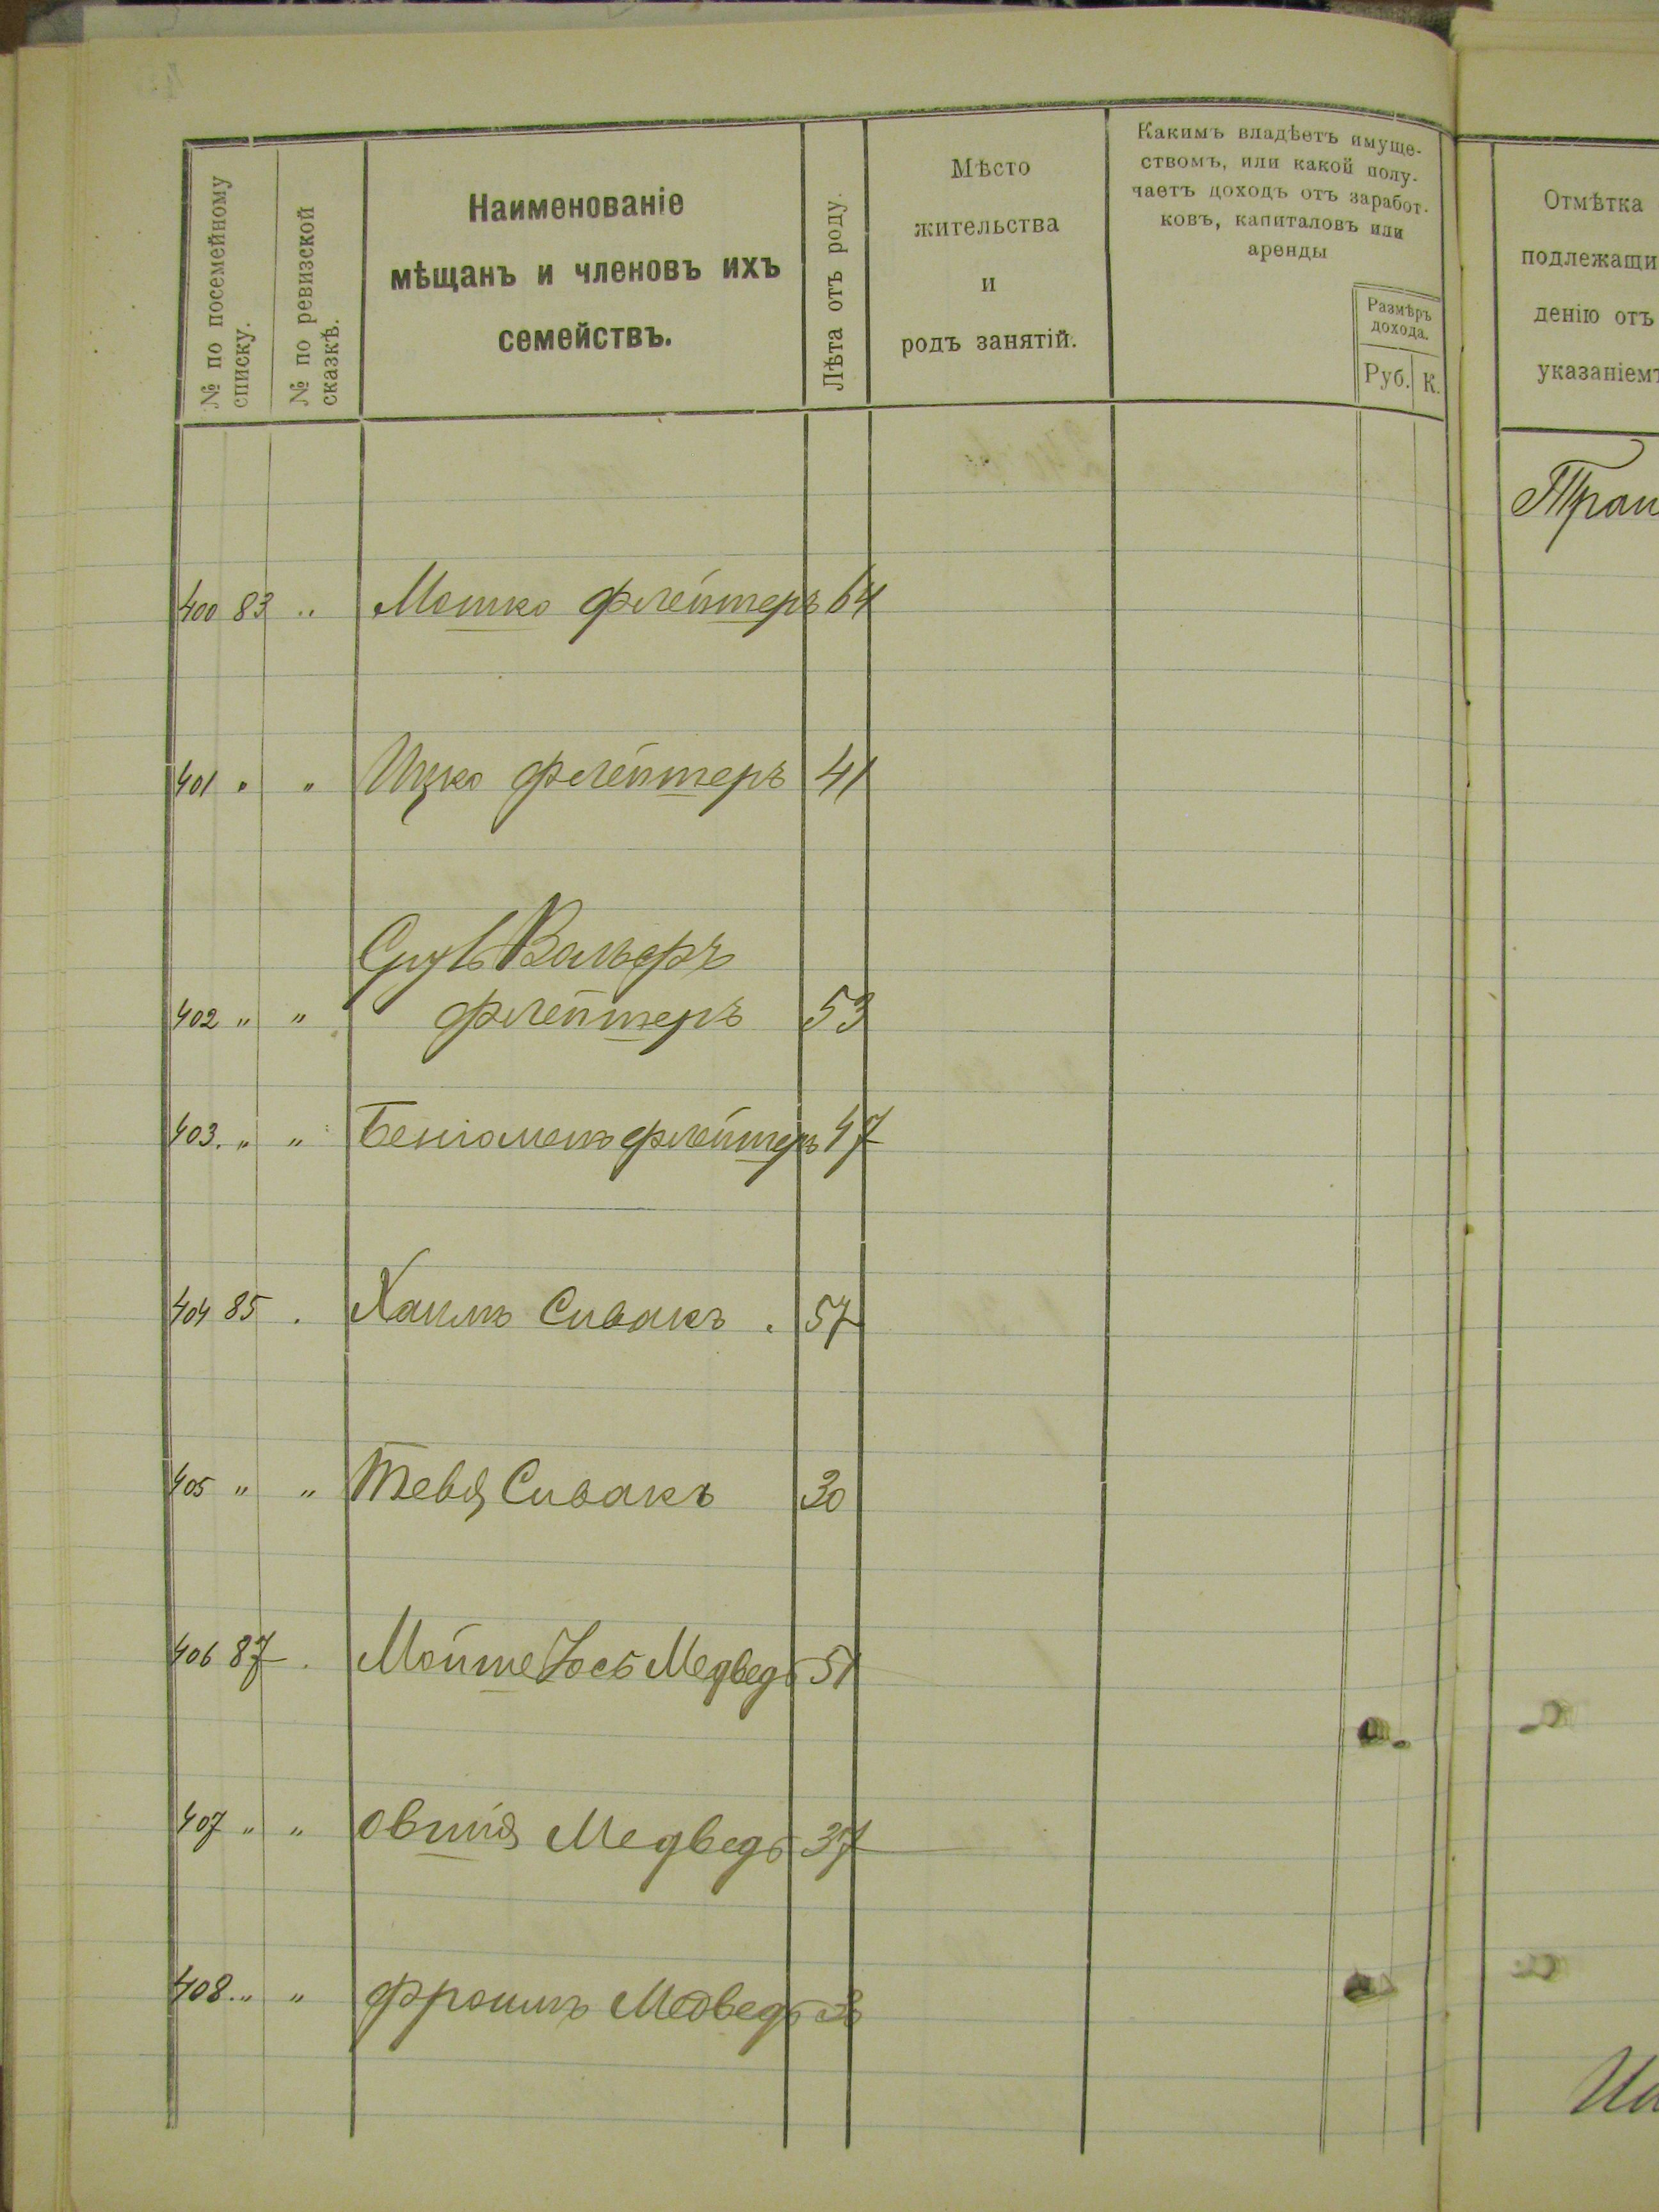 № по посемейному
списку.
№ по ревизской
сказкѣ.
Наименованіе
мѣщанъ и членовъ ихъ
семействъ.
Лѣта отъ роду.
Мѣсто
жительства
и
родъ занятій.
Какимъ владѣетъ имуще-
ствомъ, или какой полу-
чаетъ доходъ отъ заработ-
ковъ, капиталовъ или
аренды
Размѣръ
дохода.
Руб. К.
Отмѣтка
подлежащи
денію отъ
указаніемъ
400 83 " Мошко Флейтеръ 64
401 " " Ицко Флейтеръ 41
Вольфъ
402 " " Флейтеръ 53
403. " " Беніоменъ Флейтеръ 47
404 85 . Хаимъ Сивакъ . 57
405 " " Тевя Сивакъ 30
406 87 . Мойше Іось Медведь 51
407 " " Овшія Медведь 37
408. " " Фроимъ Медведь